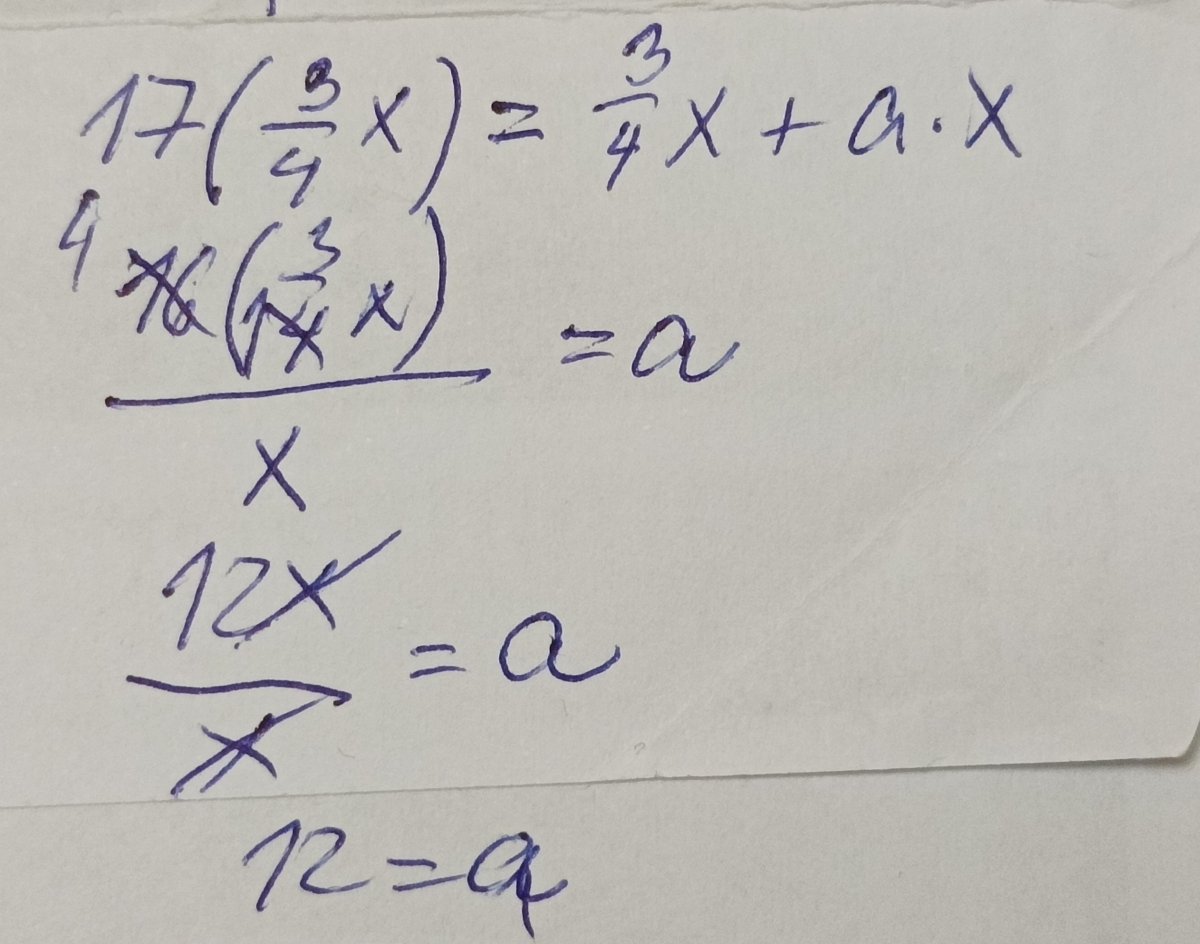 17(3/4 x) = 3/4 x + a · x
4 16(3/4 x) / x = a
12x / x = a
12 = a